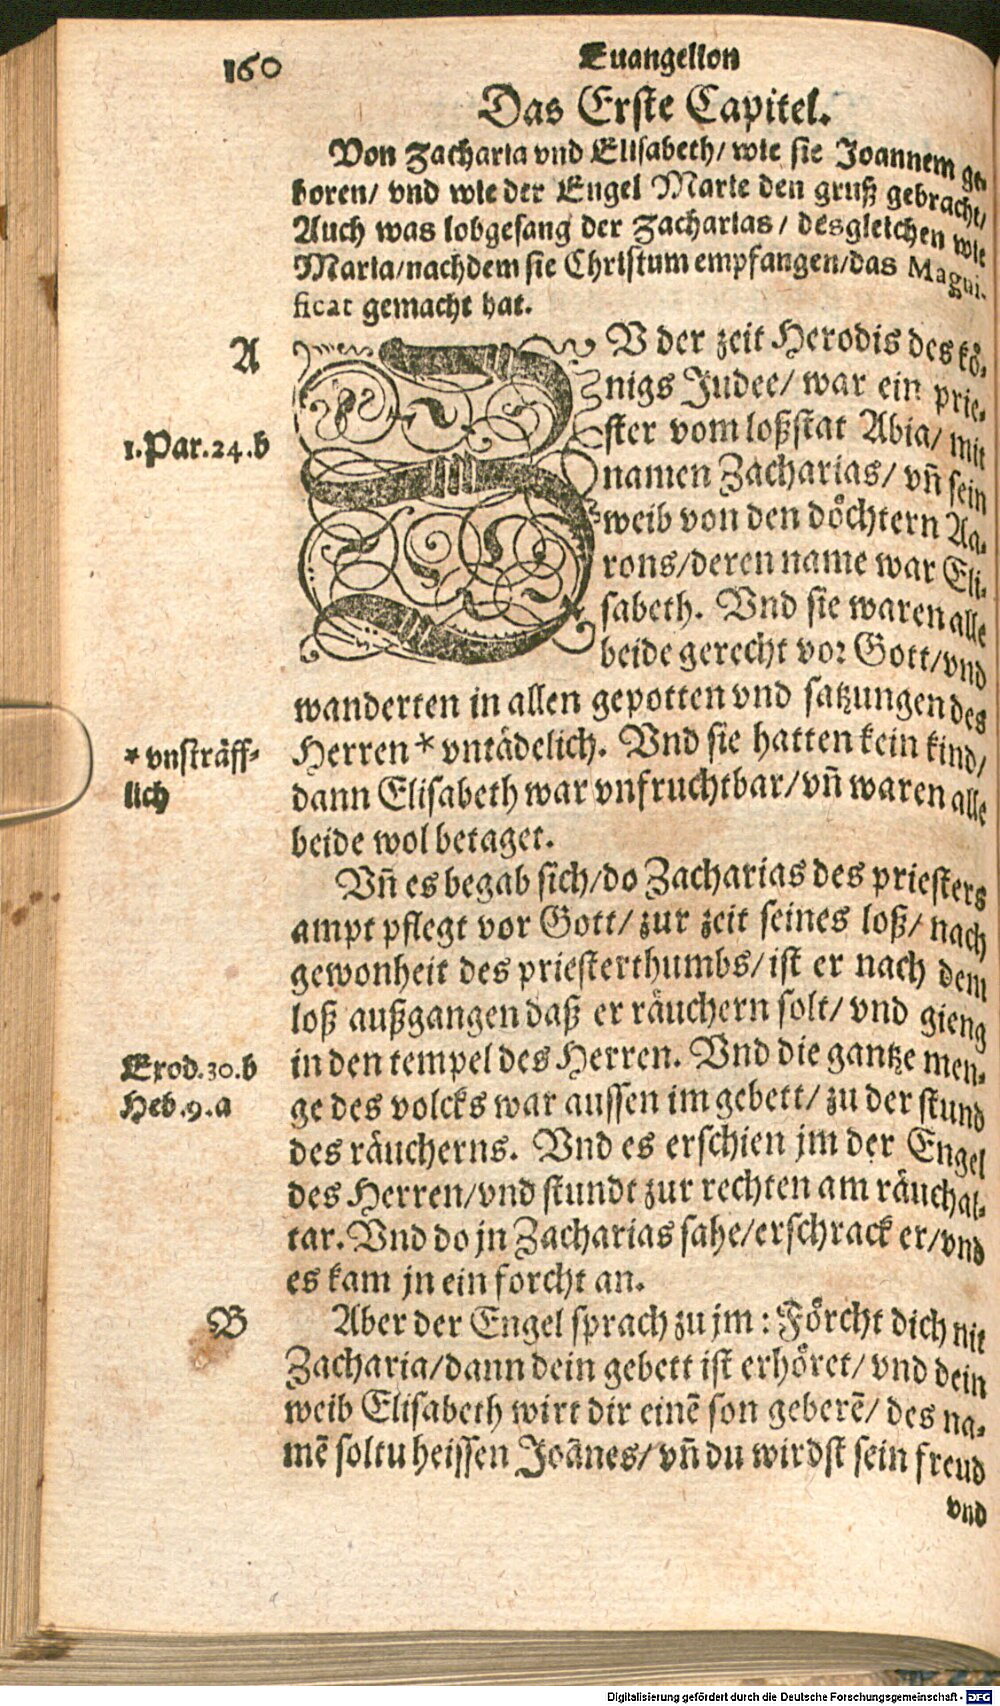 160
Euangelion
Das Erste Capitel.
Von Zacharia vnd Elisabeth/ wie sie Joannem ge-
boren/ vnd wie der Engel Marie den gruß gebracht/
Auch was lobgesang der Zacharias/ desgleichen wie
Maria/nachdem sie Christum empfangen/das Magni-
ficat gemacht hat.
A
ZV der zeit Herodis des kö-
nigs Judee/ war ein prie-
1.Par.24.b
ster vom loßstat Abia/ mit
namen Zacharias/ vñ sein
weib von den döchtern Aa-
rons/deren name war Eli-
sabeth. Vnd sie waren alle
beide gerecht vor Gott/vnd
wanderten in allen gepotten vnd satzungen des
* vnsträff-
lich
Herren * vntädelich. Vnd sie hatten kein kind/
dann Elisabeth war vnfruchtbar/vñ waren alle
beide wol betaget.
Vñ es begab sich/do Zacharias des priesters
ampt pflegt vor Gott/ zur zeit seines loß/ nach
gewonheit des priesterthumbs/ist er nach dem
loß außgangen daß er räuchern solt/ vnd gieng
Exod.30.b
in den tempel des Herren. Vnd die gantze men-
Heb.9.a
ge des volcks war aussen im gebett/ zu der stund
des räucherns. Vnd es erschien jm der Engel
des Herren/vnd stundt zur rechten am räuchal-
tar. Vnd do jn Zacharias sahe/erschrack er/vnd
es kam jn ein forcht an.
B
Aber der Engel sprach zu jm : Förcht dich nit
Zacharia/dann dein gebett ist erhöret/ vnd dein
weib Elisabeth wirt dir einē son geberē/ des na-
mē soltu heissen Joānes/ vñ du wirdst sein freud
vnd
Digitalisierung gefördert durch die Deutsche Forschungsgemeinschaft - DFG